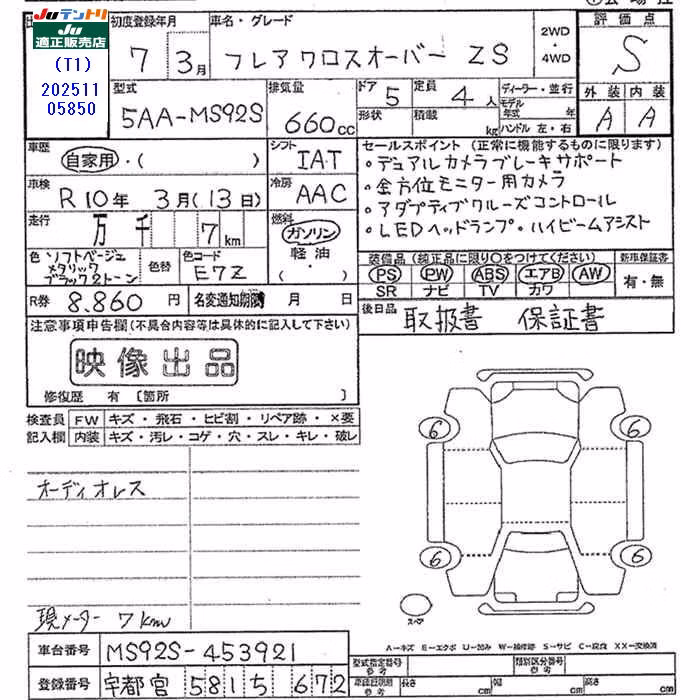 JUテントリ
JU
適正販売店
(T1)
202511
05850
初度登録年月
7 3月
車名・グレード
フレアクロスオーバー ZS
2WD
・
4WD
評価点
S
外装 内装
A A
型式
5AA-MS92S
排気量
660cc
ドア 5
定員 4人
形状
積載 kg
ディーラー・並行
モデル年式 年
ハンドル 左・右
車歴
自家用・( )
シフト
IAT
車検
R10年 3月(13日)
冷房
AAC
走行
万 千 7km
燃料
ガソリン
軽油
・( )
色 ソフトベージュ
メタリック
ブラック2トーン
色替
色コード
E7Z
R券 8.860円
名変通知期限 月 日
セールスポイント(正常に機能するものに限ります)
・デュアルカメラブレーキサポート
・全方位モニター用カメラ
・アダプティブクルーズコントロール
・LEDヘッドランプ・ハイビームアシスト
装備品(純正品に限り○をつけてください)
PS PW ABS エアB AW
SR ナビ TV カワ
新車保証書
有・無
後日品
取扱書 保証書
注意事項申告欄(不具合内容等は具体的に記入して下さい)
映像出品
修復歴 有〔箇所 〕
検査員 FW キズ・飛石・ヒビ割・リペア跡・×要
記入欄 内装 キズ・汚レ・コゲ・穴・スレ・キレ・破レ
オーディオレス
現メーター 7km
6 6
6 6
スペア
A-キズ E-エクボ U-凹み W-補修跡 S-サビ C-腐食 XX-交換済
車台番号 MS92S-453921
登録番号 宇都宮 5815 672
型式指定番号
参考
類別区分番号
参考
車証証明用
参考
長さ cm
幅 cm
高さ cm